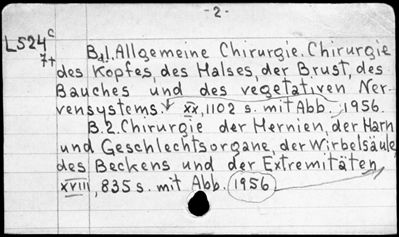 -2-
L524c
7+
Bd1. Allgemeine Chirurgie. Chirurgie
des Kopfes, des Halses, der Brust, des
Bauches und des vegetativen Ner-
vensystems. XX, 1102 s. mit Abb., 1956.
B.2. Chirurgie der Hernien, der Harn
und Geschlechtsorgane, der Wirbelsäule,
des Beckens und der Extremitäten
XVIII, 835 s. mit Abb. 1956